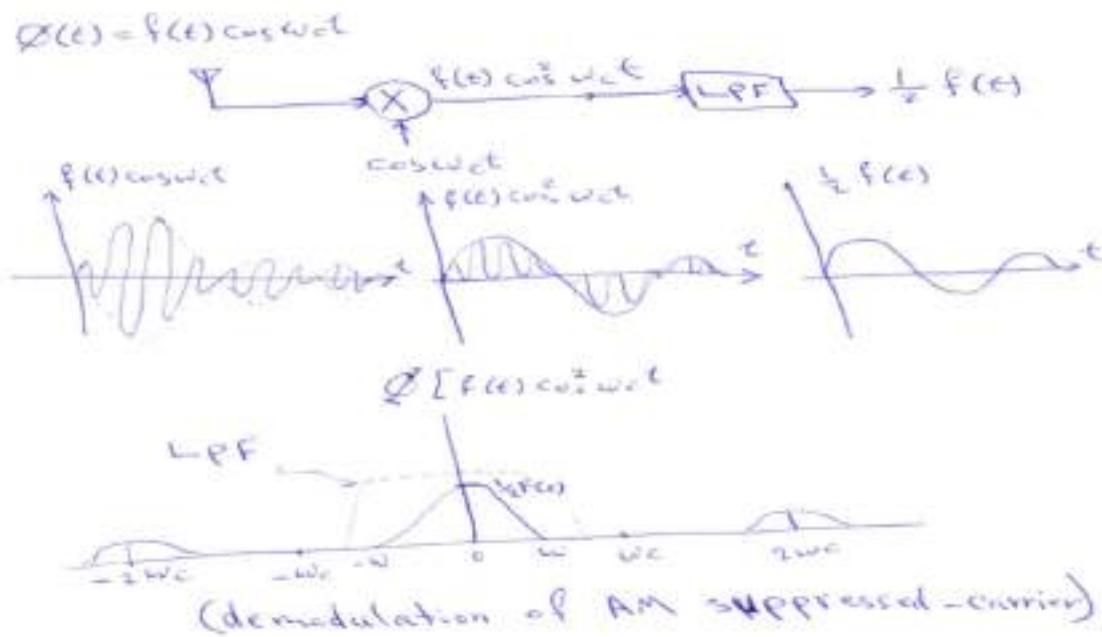 Ø(t) = f(t) cos ωct
f(t) cos² ωct
X
LPF
½ f(t)
cos ωct
f(t) cos ωct
f(t) cos² ωct
½ f(t)
t
t
t
Ø[f(t) cos² ωct
LPF
½F(ω)
-2ωc -ωc -w 0 w ωc 2ωc
(demodulation of AM suppressed-carrier)